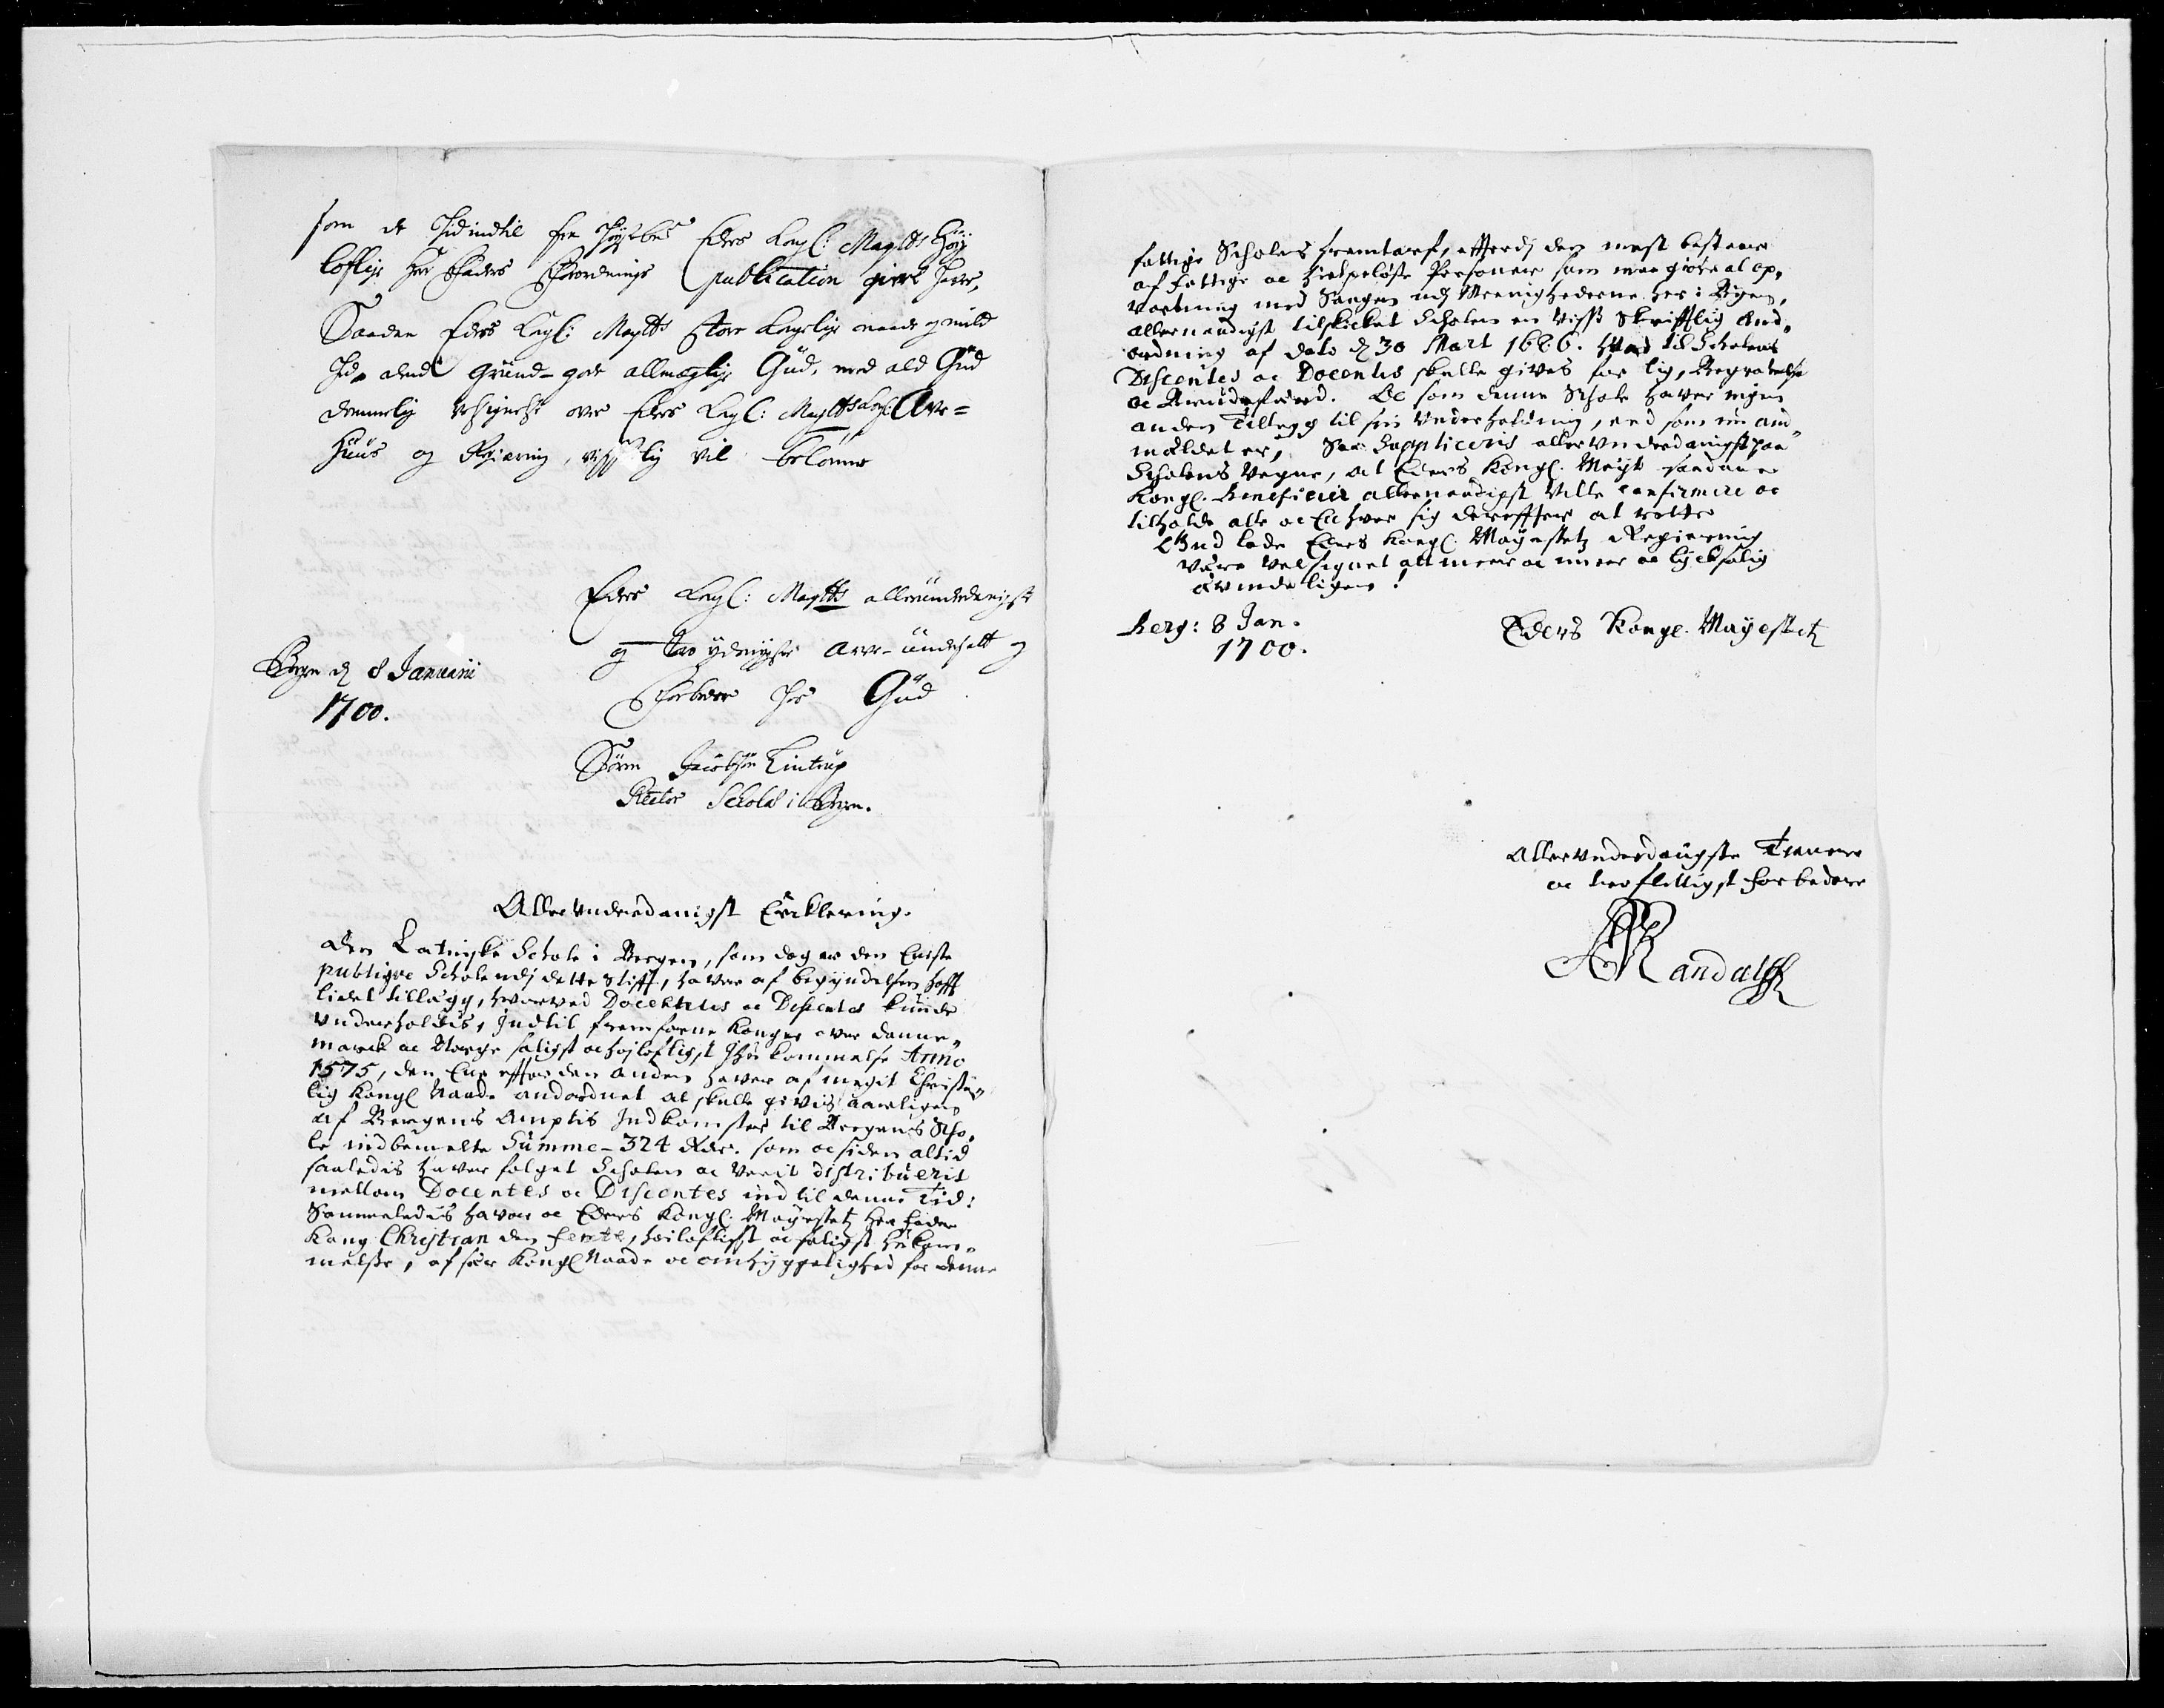 som de hid indtil fra høystbe^te Eders Kongl: Maytts Høy
loflige Her Faders Forordnings publication giort haver,
Saadan Eders Kngl: Maytts store Kongelige naade og mild
hed den grund-gode allmægtige Gud, med ald Gud
dommelig velsignelse over Eders Kngl: Maytts Kongl: Arve=
Huus og Regiering, visselig vil belønne
Eders Kngl: Maytts allerunderdanigste
og troe ydmygste arve-undersatt og
Forbeder hos Gud
Bergen d 8 Januarii
1700.
Søren Jacobsen Lintrup
Rector Scholæ i Bergen.
Allerunderdanigst Erklering.
Den Latinske Schole i Bergen, som dog er den Eniste
publique Schole udj dette Stifft, haver af begyndelsen hafft
lidet tillegg, hvorved Docentes oc Discentes kunde
underholdis, Indtil fremfarne Konger over Danne„
marck oc Norge saligst oc højloflligst Ihukommelse Anno
1575, den Ene effter den anden haver af megit Christe„
lig Kongl Naade andordnet at skulle givis aarligen
af Bergens Amptis Indkomster til Bergens Scho„
le indbemelte Summe - 324 Rdr. som oc siden altid
saaledis haver folget Scholen oc verit distribuerit
mellem Docentes oc Discentes ind til denne Tid:
Sammeledis haver oc Eders Kongl. Mayestetz Her Fader
Kong Christian den Femte, høiloflligst oc saligst hukom„
melse, af sær Kongl Naade oc omhyggelighed for denne
fattige Scholes fremtarf, efferdj den mest bestaar
af fattige oc hielpeløse Personer som maa giøre al op„
vartning med Sangen udj Menighederne her i Byen,
allernaadigst tilskicket Scholen en viss Skrifftlig And„
ordning af dato d 30 Mart 1686. Hvad til Scholens
Discentes oc Docentes skulle gives for lig, Begravelse
oc Brudeferd. Oc som denne Schole haver ingen
anden Tillegg til sin Underholdning, end som nu an„
meldet er, Saa Suppliceris allerunderdanigst paa
Scholens Vegne, at Eders Kongl. Mayt saadanne
Kongl. Beneficier allernaadigst Ville confirmere oc
tilholde alle oc Enhver sig dereffter at rette
Gud lade Eders Kongl. Mayestetz Regiering
være velsignet alt meer oc meer oc lycksalig
ævindeligen!
Berg: 8 Jan.
1700.
Eders Kongl. Mayestetz
Allerunderdanigste Tienere
oc troeflittigst forbedere
NRandulff